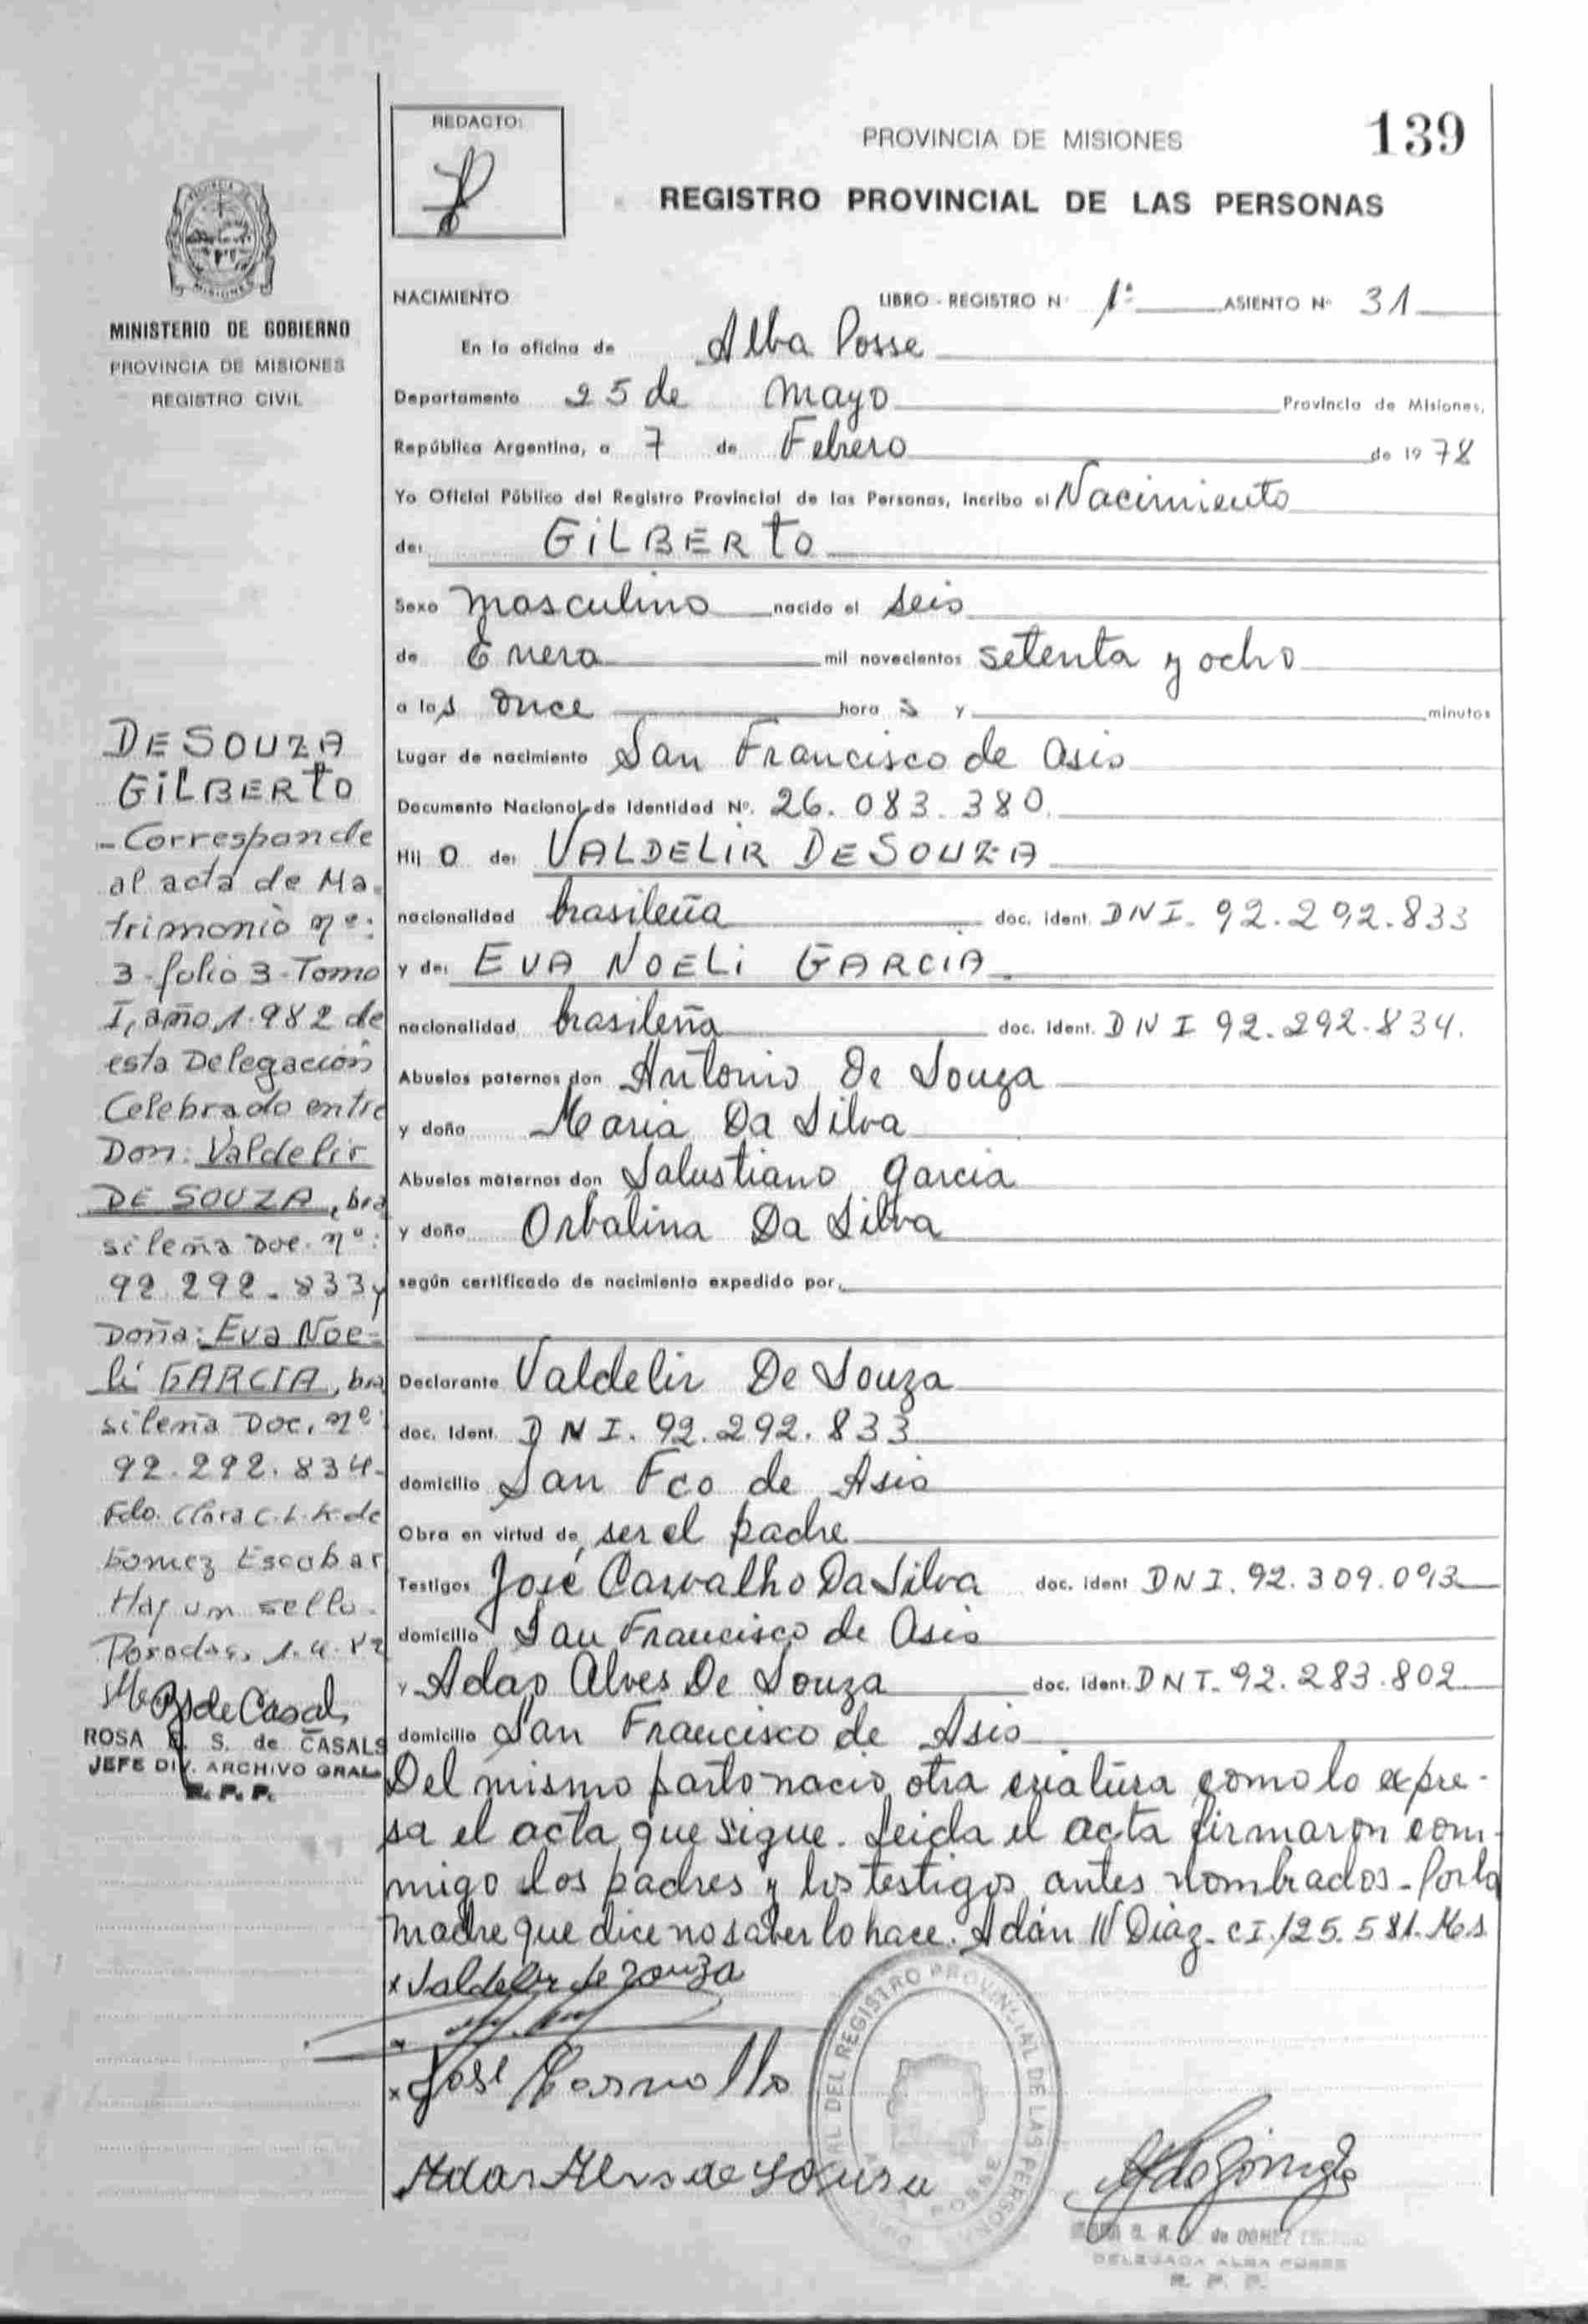 REDACTO:
PROVINCIA DE MISIONES
139
REGISTRO PROVINCIAL DE LAS PERSONAS
MINISTERIO DE GOBIERNO
PROVINCIA DE MISIONES
REGISTRO CIVIL
NACIMIENTO LIBRO - REGISTRO Nº 1º ASIENTO Nº 31
En la oficina de Alba Posse
Departamento 25 de Mayo Provincia de Misiones,
República Argentina, a 7 de Febrero de 1978
Yo Oficial Público del Registro Provincial de las Personas, incribo el Nacimiento
de: GILBERTO
Sexo masculino nacido el seis
de Enero mil novecientos setenta y ocho
a las once horas y minutos
Lugar de nacimiento San Francisco de Asis
Documento Nacional de Identidad Nº. 26.083.380.
Hijo de: VALDELIR DE SOUZA
nacionalidad brasileña doc. ident. DNI. 92.292.833
y de: EVA NOELI GARCIA
nacionalidad brasileña doc. ident. DNI 92.292.834.
Abuelos paternos don Antonio De Souza
y doña Maria Da Silva
Abuelos maternos don Salustiano Garcia
y doña Orbalina Da Silva
según certificado de nacimiento expedido por,
Declarante Valdelir De Souza
doc. Ident. DNI. 92.292.833
domicilio San Fco de Asis
Obra en virtud de, ser el padre
Testigos José Carvalho Da Silva doc. ident DNI. 92.309.093
domicilio San Francisco de Asis
y Adao Alves De Souza doc. ident. DNI. 92.283.802
domicilio San Francisco de Asis
Del mismo parto nacio otra criatura como lo expre-
sa el acta que sigue. Leida el acta firmaron con-
migo los padres y los testigos antes nombrados - Por la
madre que dice no saber lo hace. Adán W Diaz - CI. 125.581. Ms.
x Valdelir de Souza
x José Carvallo
Adao Alves de Souza
DE SOUZA
GILBERTO
- Corresponde
al acta de Ma-
trimonio nº:
3-folio 3-Tomo
I, año 1.982 de
esta Delegación
Celebrado entre
Don: Valdelir
DE SOUZA, bra
sileña Doc. nº:
92.292.833 y
Doña: Eva Noe-
li GARCIA, bra
sileña Doc. nº
92.292.834-
Fdo. Clara C. L. K. de
Gomez Escobar
Hay un sello.
Posadas, 1.4.82
ROSA E. S. de CASALS
JEFE DIV. ARCHIVO GRAL
R. P. P.
DEL REGISTRO PROVINCIAL DE LAS PERSONAS
POSSE
de GOMEZ
DELEGADA ALBA POSSE
R. P. P.